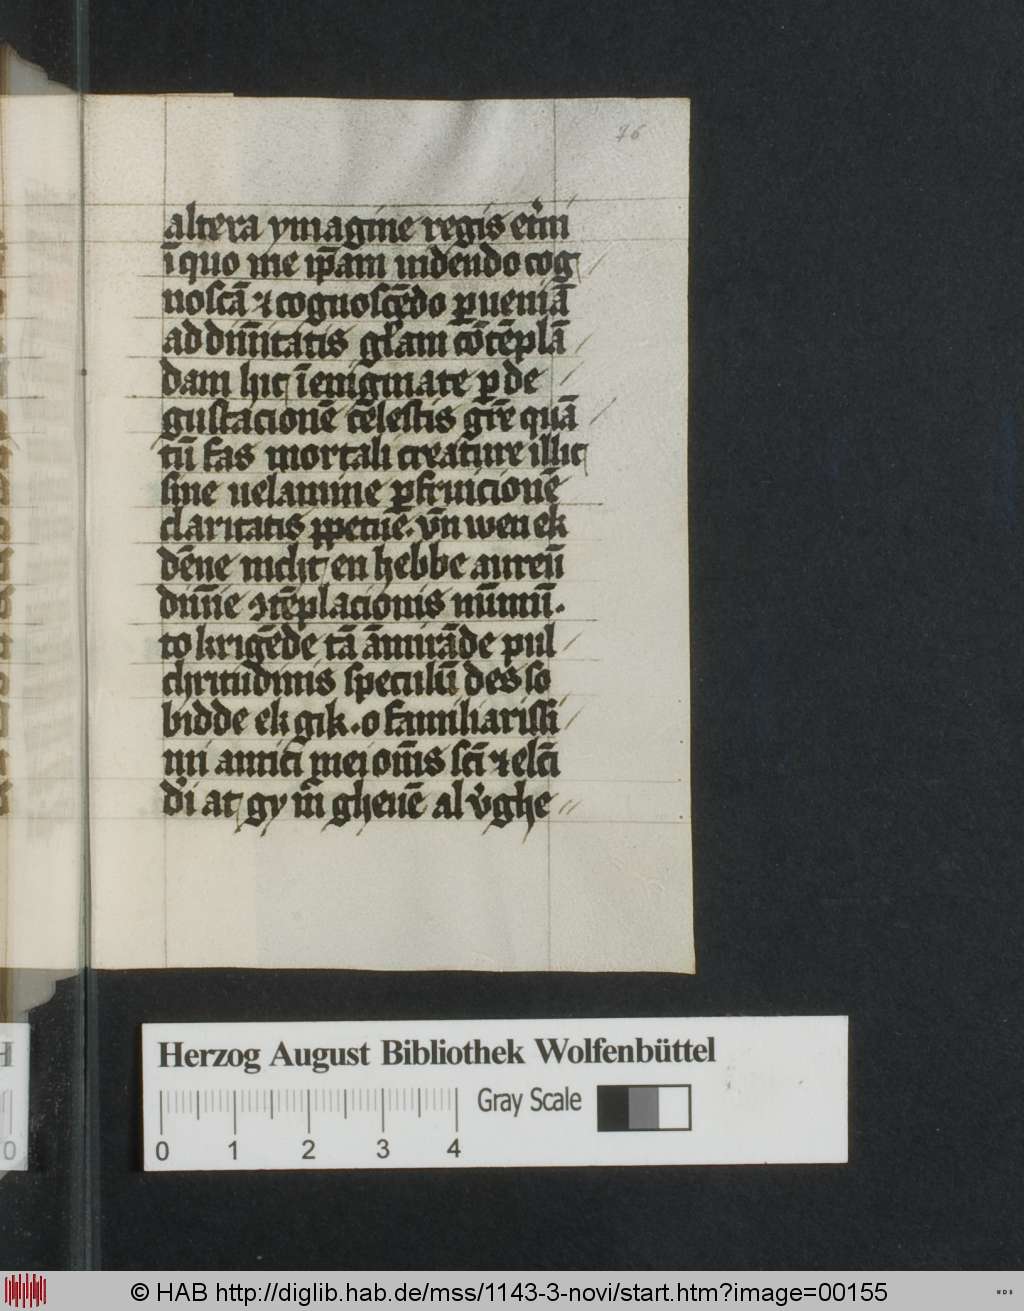 76
altera ymagine regis et̉ni
ī quo me ip̄am uidendo cog
noscā ⁊ cognoscēdo ꝑueniā
ad diuīnitatis gl̉am cōtēplā
dam hic ī enigmate ꝑ de
gustacionē cēlestis gr̄e quā
tū fas mortali creature illic
sine uelamine ꝑfruicionē
claritatis ꝑpetue. v̄n wen ek
dēne nicht en hebbe aureū
diuīne ꝯtēplacionis nūmū.
to krigēde tā āmirāde pul
chritudinis speculū des so
bidde ek gik. o familiarissi
mi amici mei om̄s sc̄i ⁊ elc̄i
dỉ at gy m̉ gheuē al v̉ghe
Herzog August Bibliothek Wolfenbüttel
Gray Scale
0 1 2 3 4
© HAB http://diglib.hab.de/mss/1143-3-novi/start.htm?image=00155